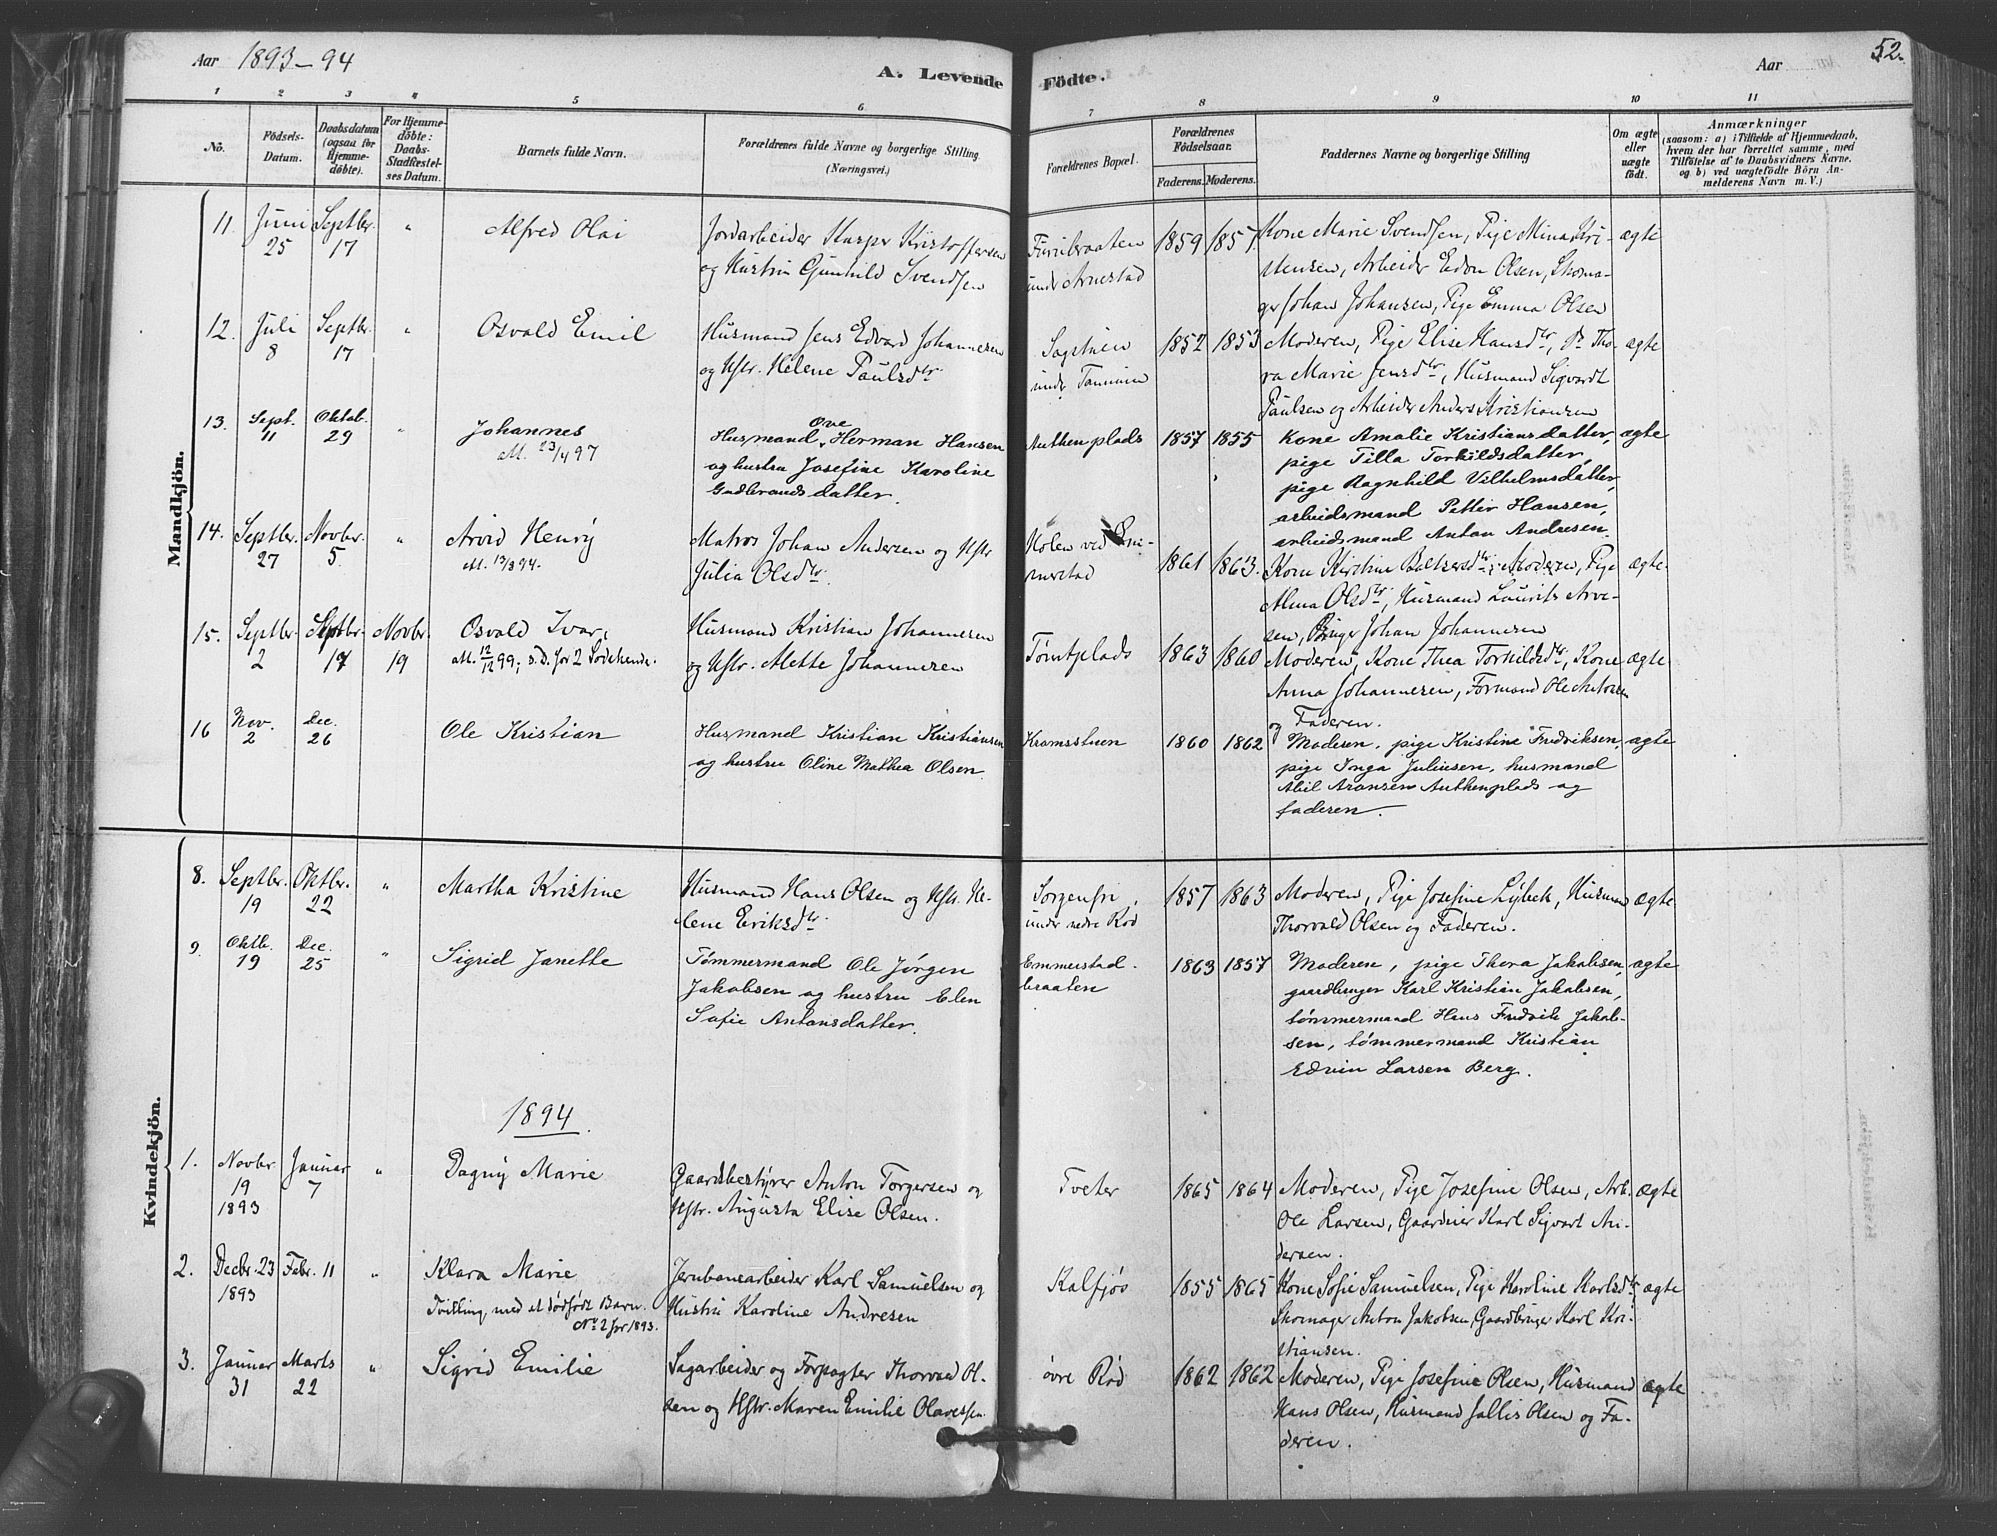 Aar 1893-94
A. Levende Födte.
Aar
52.
1 2 3 4 5 6 7 8 9 10 11
No.
Födsels-Datum.
Daabsdatum (ogsaa for Hjemmedöbte).
For Hjemmedöbte: Daabs-Stadfæstelses Datum.
Barnets fulde Navn.
Forældrenes fulde Navne og borgerlige Stilling (Næringsvei.)
Forældrenes Bopæl.
Forældrenes Födselsaar.
Faderens. Moderens.
Faddernes Navne og borgerlige Stilling
Om ægte eller uægte födt.
Anmærkninger
(saasom: a) i Tilfælde af Hjemmedaab,
hvem der har forrettet samme, med
Tilföielse af to Daabsvidners Navne.
og b) ved uægtefödte Börn Anmelderens Navn m. V.)
Mandkjön.
11. Juni 25 Septbr. 17 " Alfred Olai
Jordarbeider Kasper Kristoffersen
og Hustru Gunhild Svendsen
Furubraaten
under Arnestad
1859 1857
Kone Marie Svendsen, Pige Mina Kri-
stensen, Arbeider Edv. Olsen, Skoma-
ger Johan Johansen, Pige Emma Olsen
ægte
12. Juli 8 Septbr. 17 " Osvald Emil
Husmand Jens Edvard Johannesen
og Hstr. Helene Paulsdtr
Sagstuen
under
1852 1853
Moderen, Pige Elise Hansdtr, P. Tho-
ra Marie Jensdtr, Husmand Sigvardt
Paulsen og Arbeider Anders Kristiansen
ægte
13. Sept. 11 Oktob. 29 " Johannes
At. 23/4 97
Ove
Husmand Herman Hansen
og hustru Josefine Karoline
Gudbrandsdatter.
Authenplads
1857 1855
Kone Amalie Kristiansdatter,
pige Tilla Torkildsdatter,
pige Ragnhild Vilhelmsdatter,
arbeidsmand Petter Hansen,
arbeidsmand Anton Andresen.
ægte
14. Septbr. 27 Novbr. 5. " Arvid Henry
At. 13/8 94.
Matros Johan Andersen og Hstr
Julia Olsdtr.
Holen ved Em-
merstad
1861 1863.
Kone Kirstine Baltzersdtr, Moderen, Pige
Alma Olsdtr, Husmand Laurits Arve-
sen, Pige Johan Johannesen
ægte.
15. Septbr. 2 Septbr. 17 Novbr. 19 Osvald Ivar,
att. 12/12 99; s. D. for 2 Sødskende.
Husmand Kristian Johannesen
og Hstr. Mette Johannesen
Tomtplads
1863 1860
Moderen, Kone Thea Torkildsdtr, Kone
Anna Johannesen, Formand Ole Antonsen
og Faderen.
ægte
16 Nov. 2 Dec. 26 Ole Kristian
Husmand Kristian Kristiansen
og hustru Oline Mathea Olsen
Kramsstuen
1860 1862
Moderen, pige Kristine Fredriksen,
pige Inga Juliusen, husmand
Abil Aronsen Authenplads og
faderen.
ægte
Kvindekjön.
8. Septbr. 19 Oktbr. 22 " Martha Kristine
Husmand Hans Olsen og Hstr. He-
lene Eriksdtr.
Sorgenfri,
under nedre Rød
1857 1863
Moderen, Pige Josefine Lybeck, Husmand
Thorvald Olsen og Faderen.
ægte.
9. Oktb. 19 Dec. 25 " Sigrid Janette
Tømmermand Ole Jørgen
Jakobsen og hustru Elen
Sofie Antonsdatter.
Emmerstad-
braaten
1863 1857
Moderen, pige Thora Jakobsen,
gaardbruger Karl Kristian Jakobsen,
tømmermand Hans Fredrik Jakob-
sen, tømmermand Kristian
Edvin Larsen Berg.
ægte
1894.
1. Novbr 19 1893 Januar 7 " Dagny Marie
Gaardsbestyrer Anton Torgersen og
Hstr. Augusta Elise Olsen.
Tveter
1865 1864
Moderen, Pige Josefine Olsen, Arb.
Ole Larsen, Gaardeier Karl Sigvart An-
dersen.
ægte
2. Decbr. 23 1893 Febr. 11 " Klara Marie
Tvilling, med et dødfødt Barn.
No 2 for 1893.
Jernbanearbeider Karl Samuelsen og
Hustru Karoline Andresen
Kalfjøs
1855 1865
Kone Sofie Samuelsen, Pige Karoline Karlsdtr
Skomager Anton Jakobsen, Gaardbruger Karl Kri-
stiansen.
ægte
3. Januar 31 Marts 22 " Sigrid Emilie
Sagarbeider og Forpagter Thorvald Ol-
sen og Hstr. Maren Emilie Olavessen
øvre Rød
1862 1862
Moderen, Pige Josefine Olsen, Husmand
Hans Olsen, Husmand Jallis Olsen og Fa-
deren.
ægte